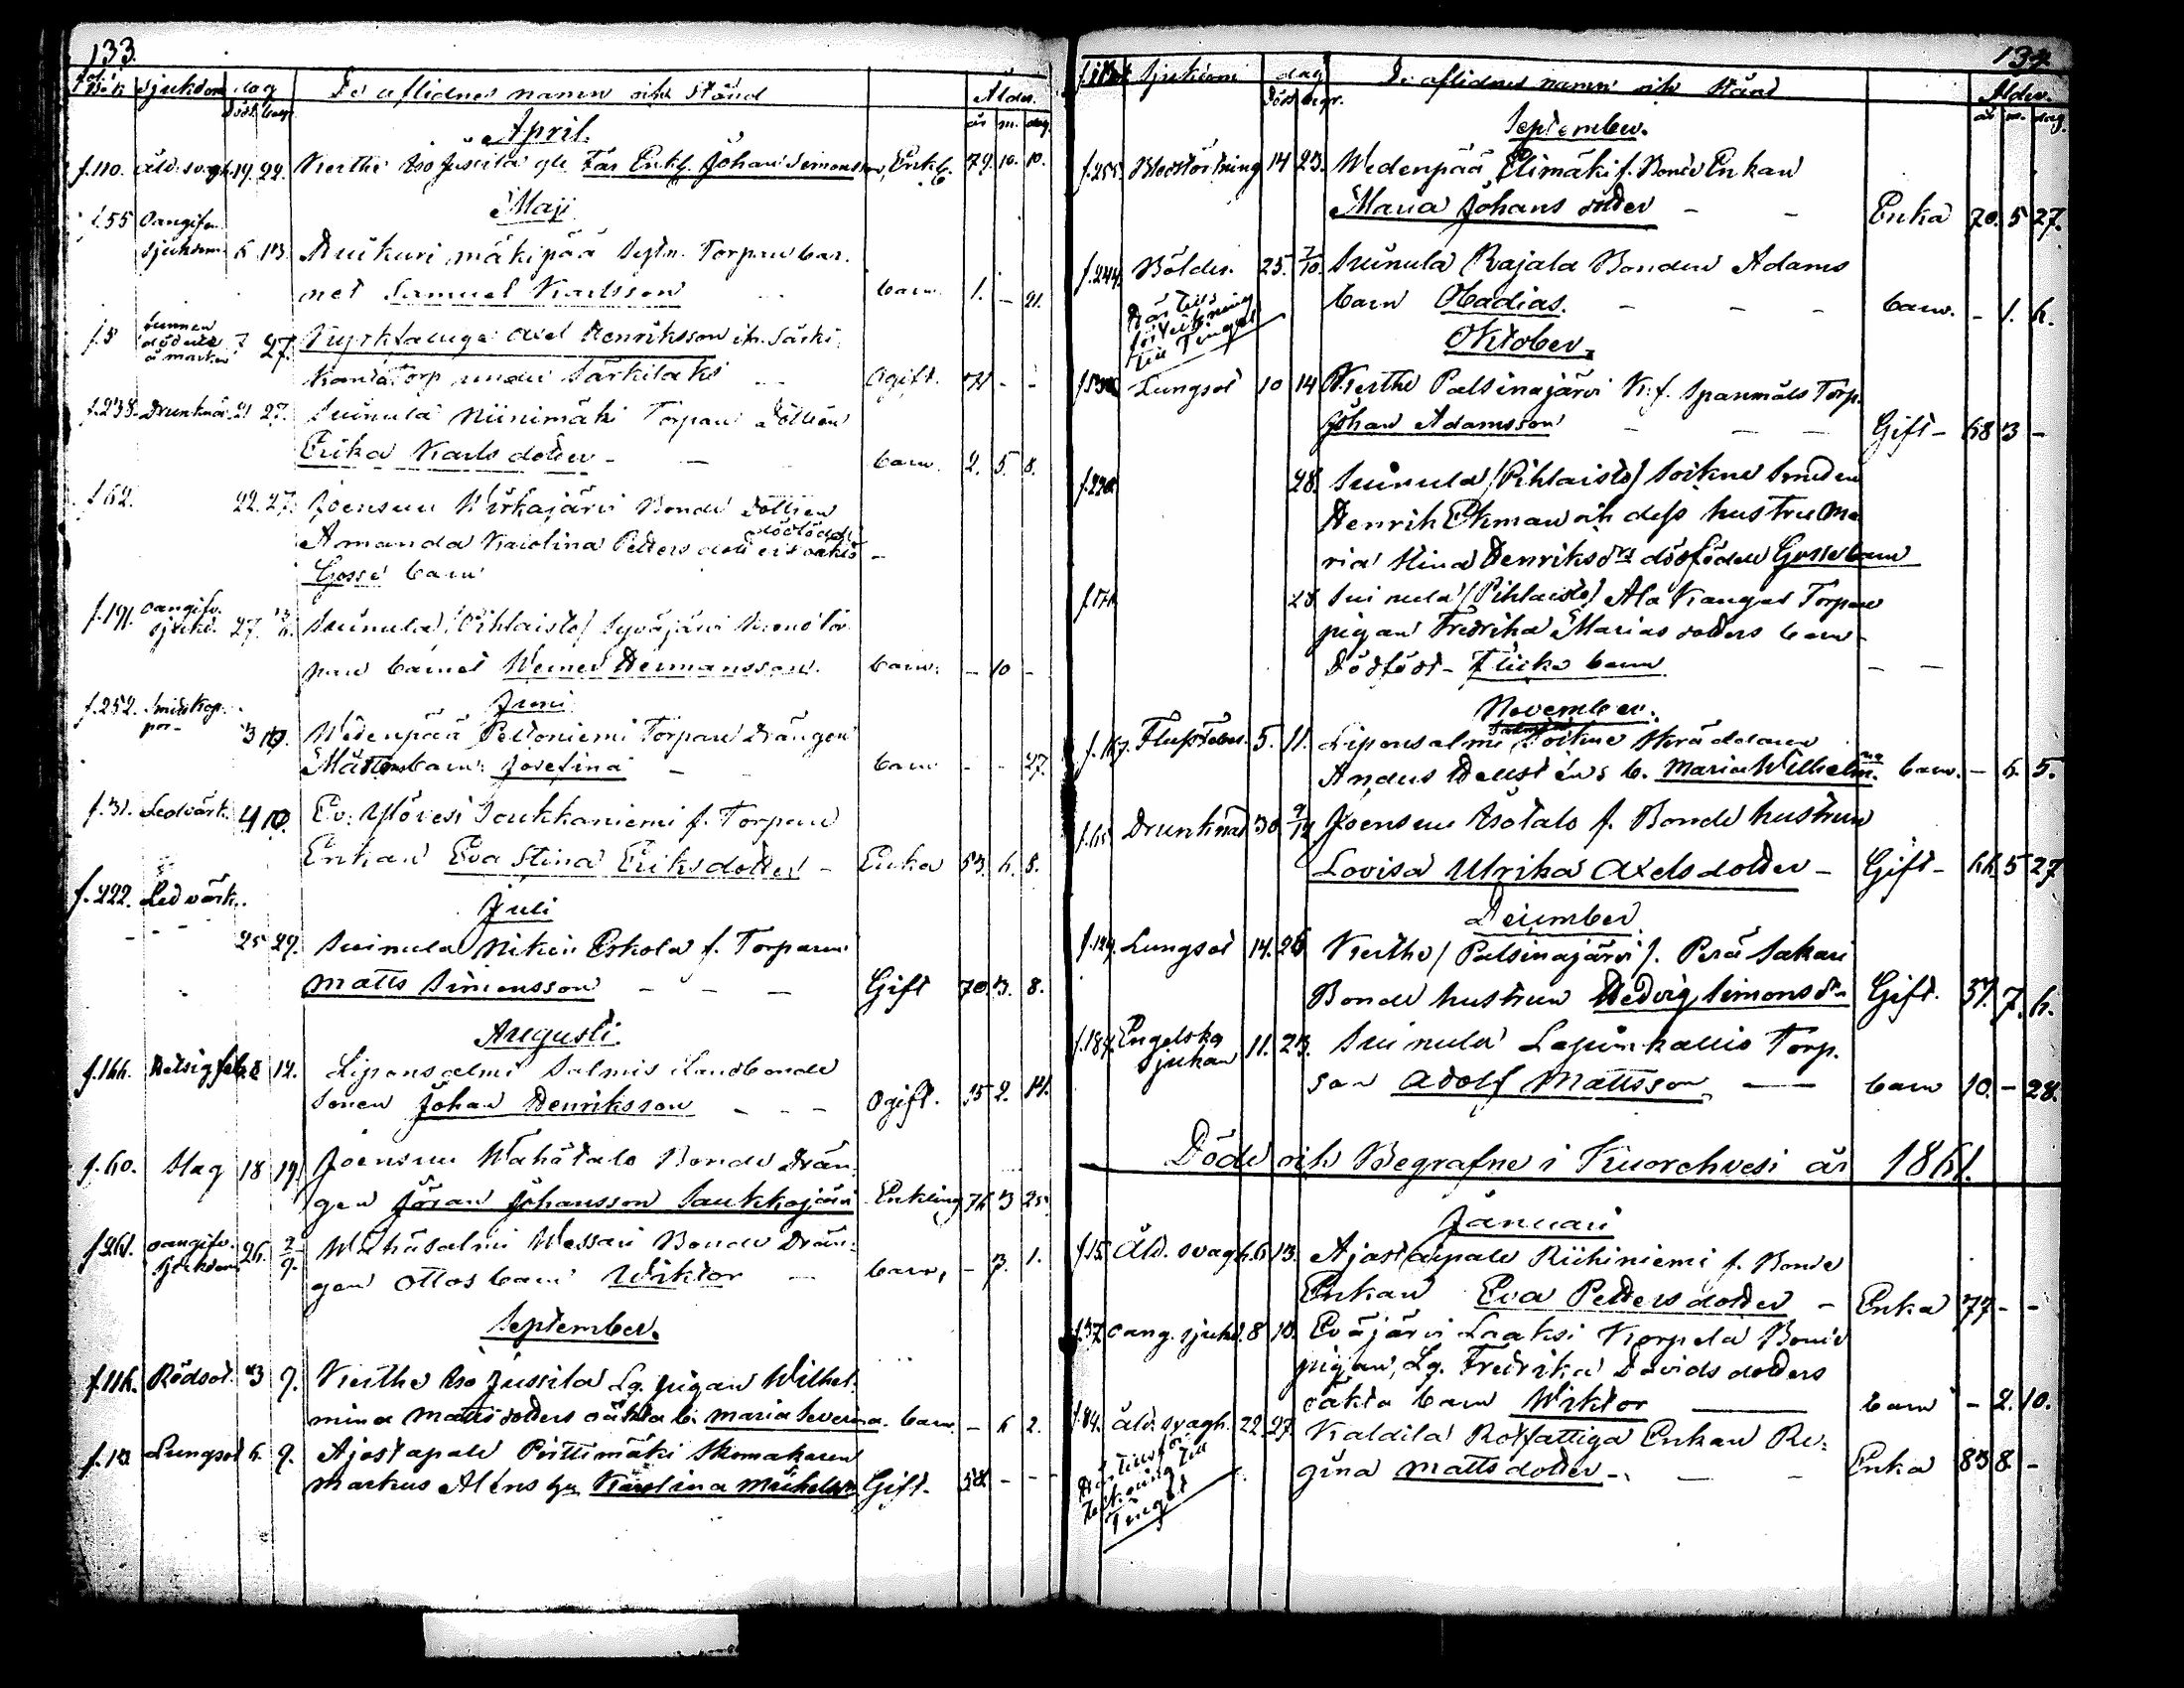 133.
sjukdom dag De aflidnes namn och stånd Ålder.
död begr. år m. dag.
April.
f.110. åld. svagh. 19. 22. Kertte Iso Jussila gl. Far Enkl. Johan Simonsson, Enkl. 79. 10. 10.
Maji
f.55 Oangifen
sjukdom 6 13. mäkipää Torpare bar-
net Samuel Karlsson barn 1. - 21.
f.5 funnen
död ute
å marken 7 27. Axel Henriksson
torp under Särkilaks Ogift. - -
f.238. Drunknad 21 27. Suinula Niinimäki Torpare dottren
Erika Karls dotter - barn. 2. 5. 8.
f.62. 22. 27. Joensuu Wirkajärvi Bonde dottren
Amanda Karolina Petters dotters oäkta dödfödde
Gosse barn
f.191. oangifv.
sjukd. 27. Suinula (Pihlaisto) Syväjärvi
pare barnet Werner Hermansson. barn. - 10 -
Juni
f.252. Smittkop-
por- 3 10. Wedenpää Peltoniemi Torpare drängen
Mattsons barn: Josefina - barn - - 27.
f.31. Ledvärk. 4 10. Ev: Ylövesi Saukkaniemi f. Torpare
Enkan Eva Stina Eriksdotter - Enka 53. 6. 5.
Juli
f.222. Led värk.
25 29. Suinula Eskola f. Torparen
Matts Simonsson - - - Gift 70. 3. 8.
Augusti.
f.166. 8 12. Liponsalmi Salmis Landbonde
sonen Johan Henriksson - - - Ogift. 15 2. 14.
f.60. Slag 18 19. Joensuu Wähätalo Bonde Drän-
gen Jöran Johansson Saukkojärvi Enkling 76 3 25.
f.261. oangifv.
sjukdom 26. 2/9. Wähäsalmi Wessari Bonde Drän-
gen Ottos barn Wiktor - barn, - 3. 1.
September.
f.116. Rödsot. 3 9. Kertte Iso Jussila Lg. pigan Wilhel-
mina Matts dotters oäkta b. Maria Severina. barn. - 6 2.
f.10. Lungsot 6. 9. Ajostaipale Perttimäki Skomakaren
Markus Aléns hu Karolina Gift. 58 - -

134.
Sjukdom dag De aflidnes namn och stånd Ålder.
död begr. år m. dag.
September.
f.255. Blodstörtning 14 23. Wedenpää, Elimäki f. Bonde Enkan
Maria Johans dotter - - Enka 70. 5 27.
f.244. Bölder. 25. 7/10. Suinula Rajala Bonden Adams
barn Obadias. - - - barn. - 1. 6.
Här till
förteckning
till Tinget
Oktober.
Lungsot 10 14 Kertte Palsinajärvi K.f. Spanmåls Torp.
Johan Adamsson - - - Gift - 68 3 -
f.220 28. Suinula (Pihlaisto) Soikne Smeden
Henrik Ekman och dess hustru Ma-
ria Stina Henriks dr dödfödde Gosse barn
f.171 28 Suinula (Pihlaisto) Ala Kangas Torpare
pigan Fredrika Marias dotters barn -
Dödfödt - Flicke barn - -
November.
f.167. Flussfeber. 5. 11. Liponsalmi Soikne Skräddaren
Anders b. Maria Wilhelmina. barn. - 6. 5.
f.65. Drunknad 30 9/12 Joensuu Isotalo f. Bonde hustrun
Lovisa Ulrika Axelsdotter - Gift - 66. 5 27
December.
f.129. Lungsot 14. 26 Kertte (Palsinajärvi). Perä Sakari
Bonde hustrun Hedvig Simonsdr Gift. 37. 7. 6.
f.187. Engelska
sjukan 11. 23. Suinula Lapinkallio Torp.
son Adolf Mattsson, - barn 10. - 28.
Döde och Begrafne i Kuorehvesi år 1861.
Januari
f.15. Åld. svagh. 6 13. Ajostaipale Riihiniemi f. Bonde
Enkan Eva Petters dotter - Enka 77 - -
f.37. oang. sjukd. 8 13. Eväjärvi Laaksi Korpela Bonde
pigan, Lg. Fredrika Davids dotters
oäkta barn Wiktor - barn - 2. 10.
f.84. åld. svagh. 22. 27. Kaldila Rotfattiga Enkan Re-
gina Mattsdotter - - Enka 83 8. -
Här till för-
teckning till
Tinget